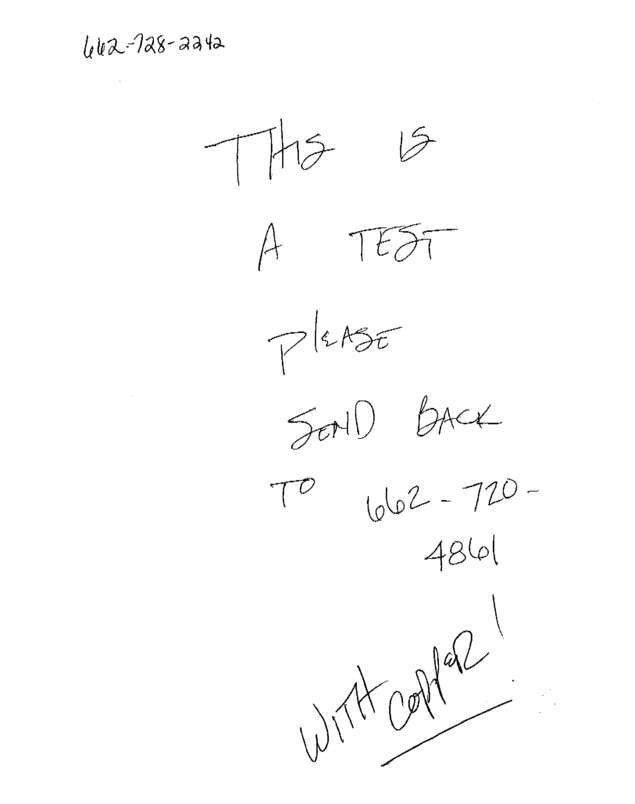 662-728-2242
THIS IS
A TEST
PLEASE
SEND BACK
TO 662-720-
4861
WITH COPPER!